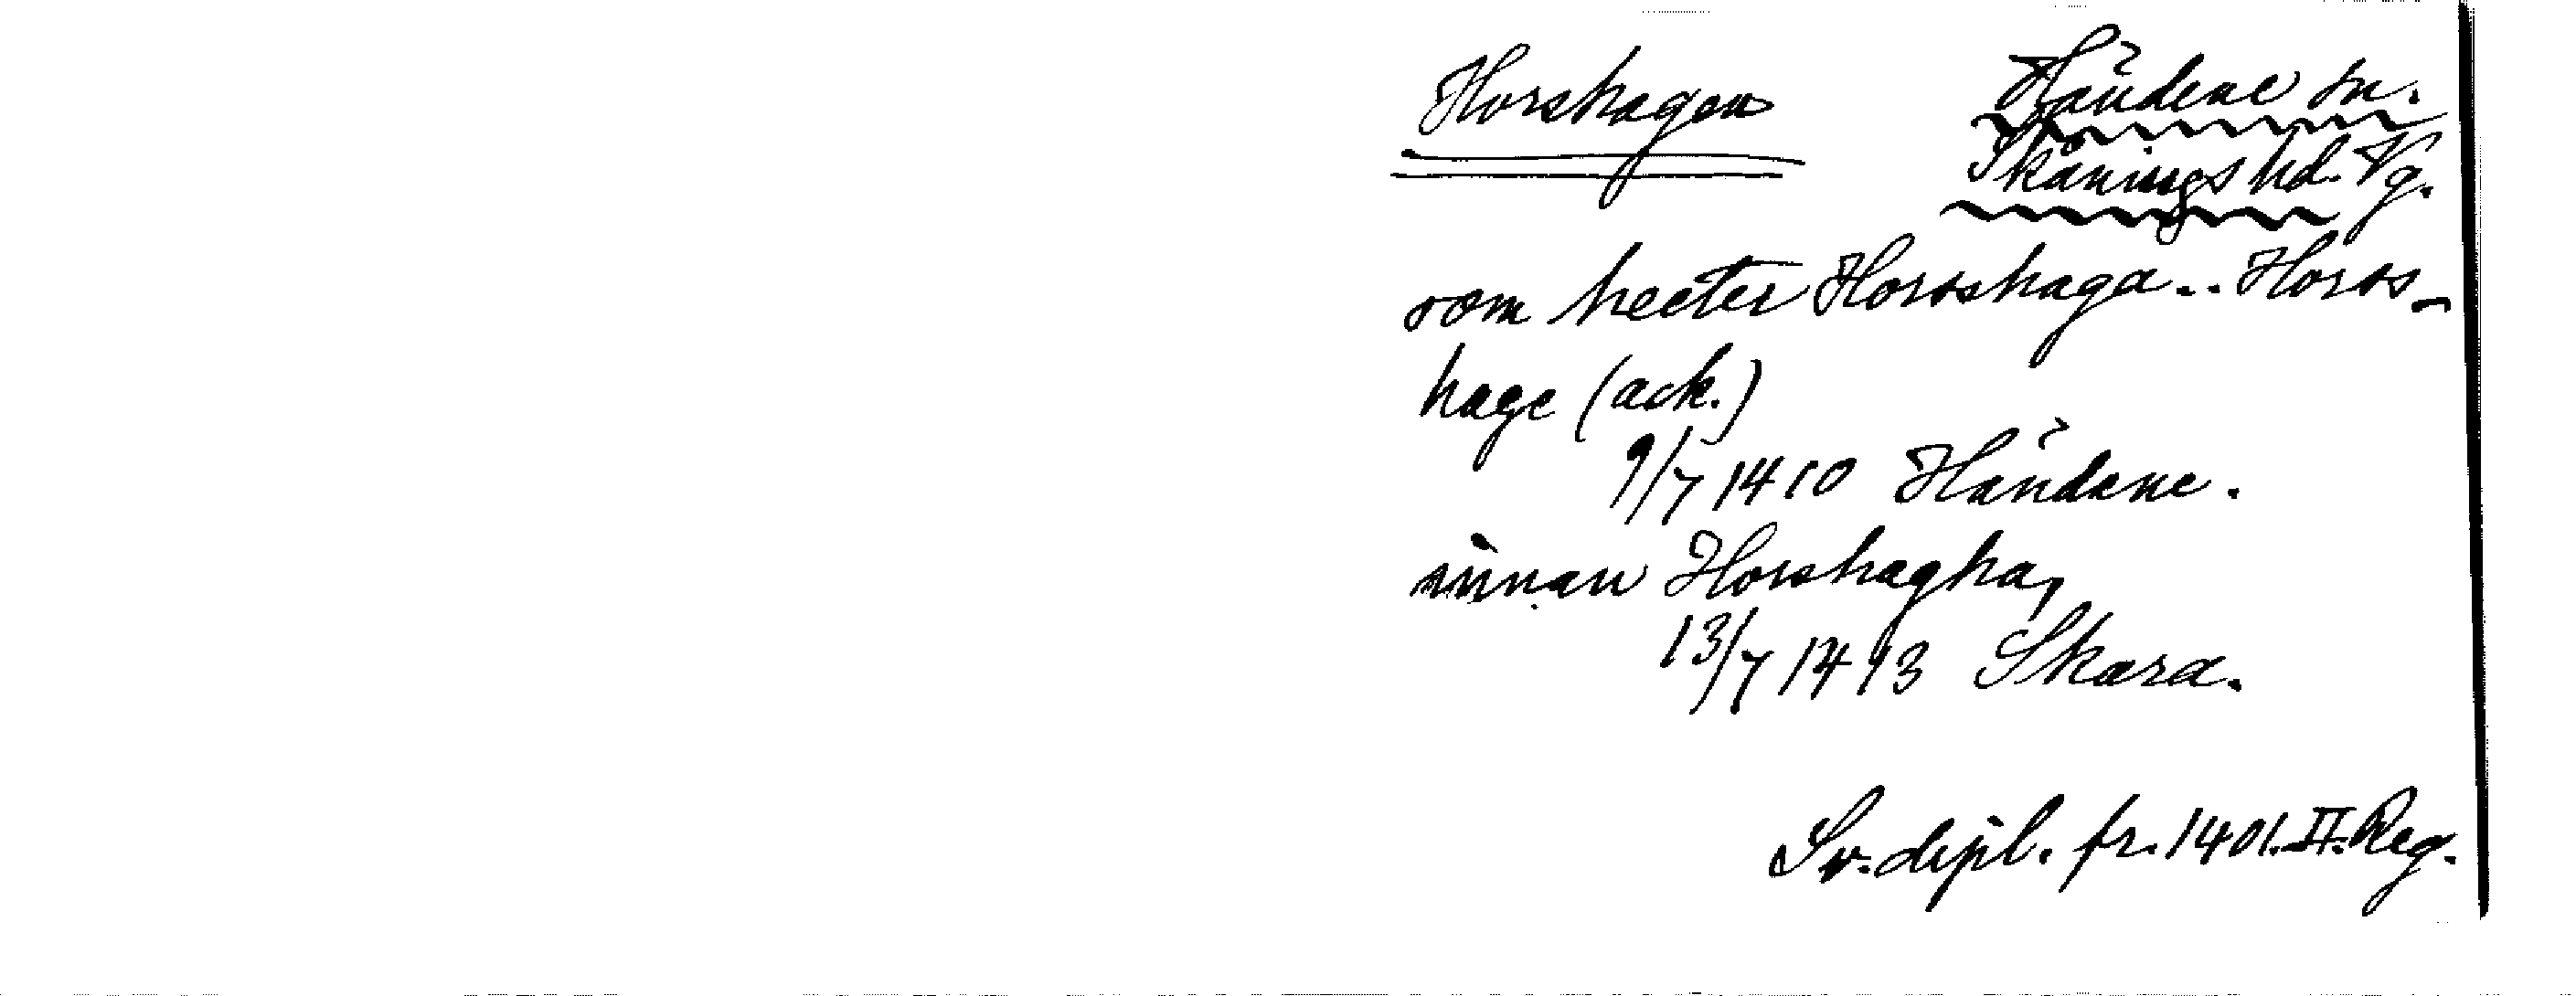 Horshagen Händene sn.
Skånings hd. Vg.
som heeter Horsshaga.. Horss-
hage (ack.)
9/7 1410 Händene.
innan Horshagha,
13/7 1413 Skara.
Sv. dipl. fr. 1401. II. Reg.